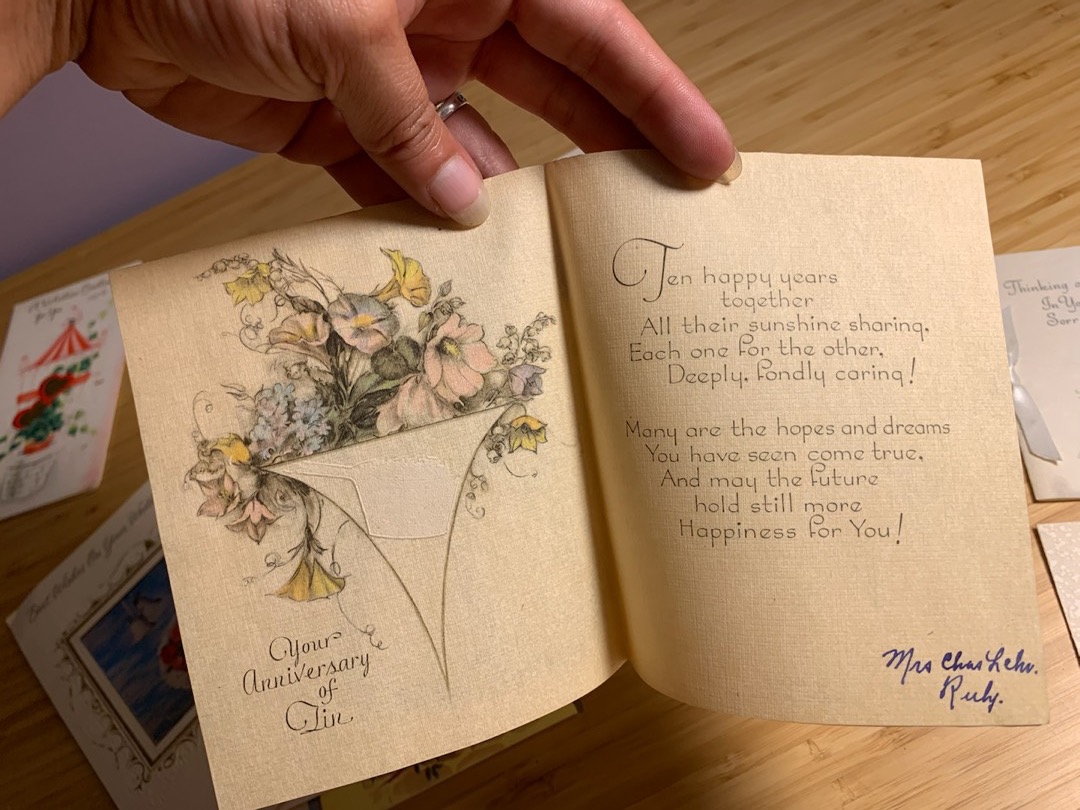 Your
Anniversary
of
Tin
Ten happy years
together
All their sunshine sharing,
Each one for the other,
Deeply, fondly caring!
Many are the hopes and dreams
You have seen come true,
And may the future
hold still more
Happiness for You!
Mrs Chas Lehr.
Ruby.
Thinking
In
Best Wishes On Your
for You